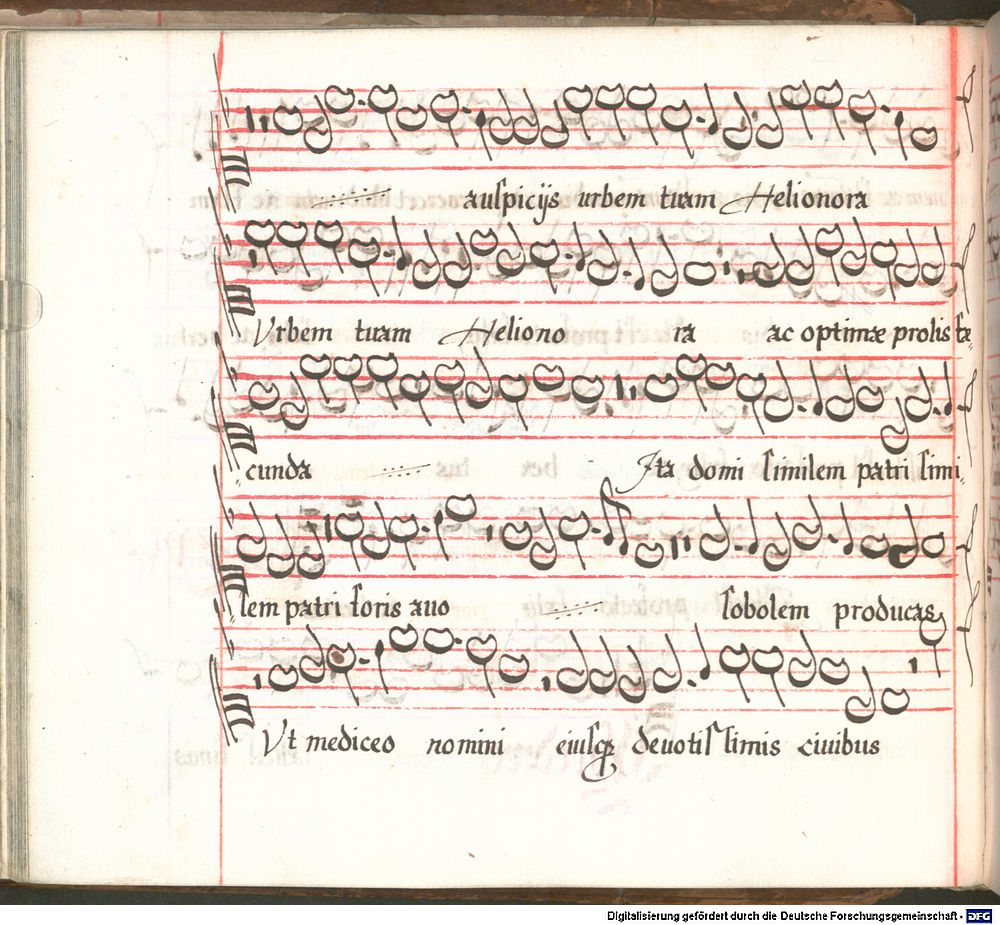 auſpicijs urbem tuam Helionora
Vrbem tuam Heliono ra ac optimæ prolis fæ-
cunda Ita domi ſimilem patri ſimi-
lem patri foris auo ſobolem producas
Vt mediceo nomini eiuſqȝ deuotiſ ſimis ciuibus
Digitalisierung gefördert durch die Deutsche Forschungsgemeinschaft - DFG